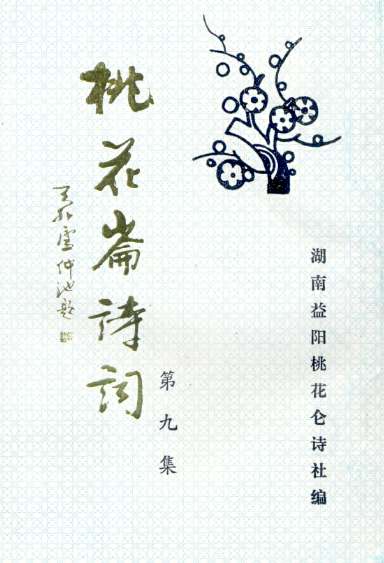 湖南益阳桃花仑诗社编
第九集
桃花崙詩詞
仲池题